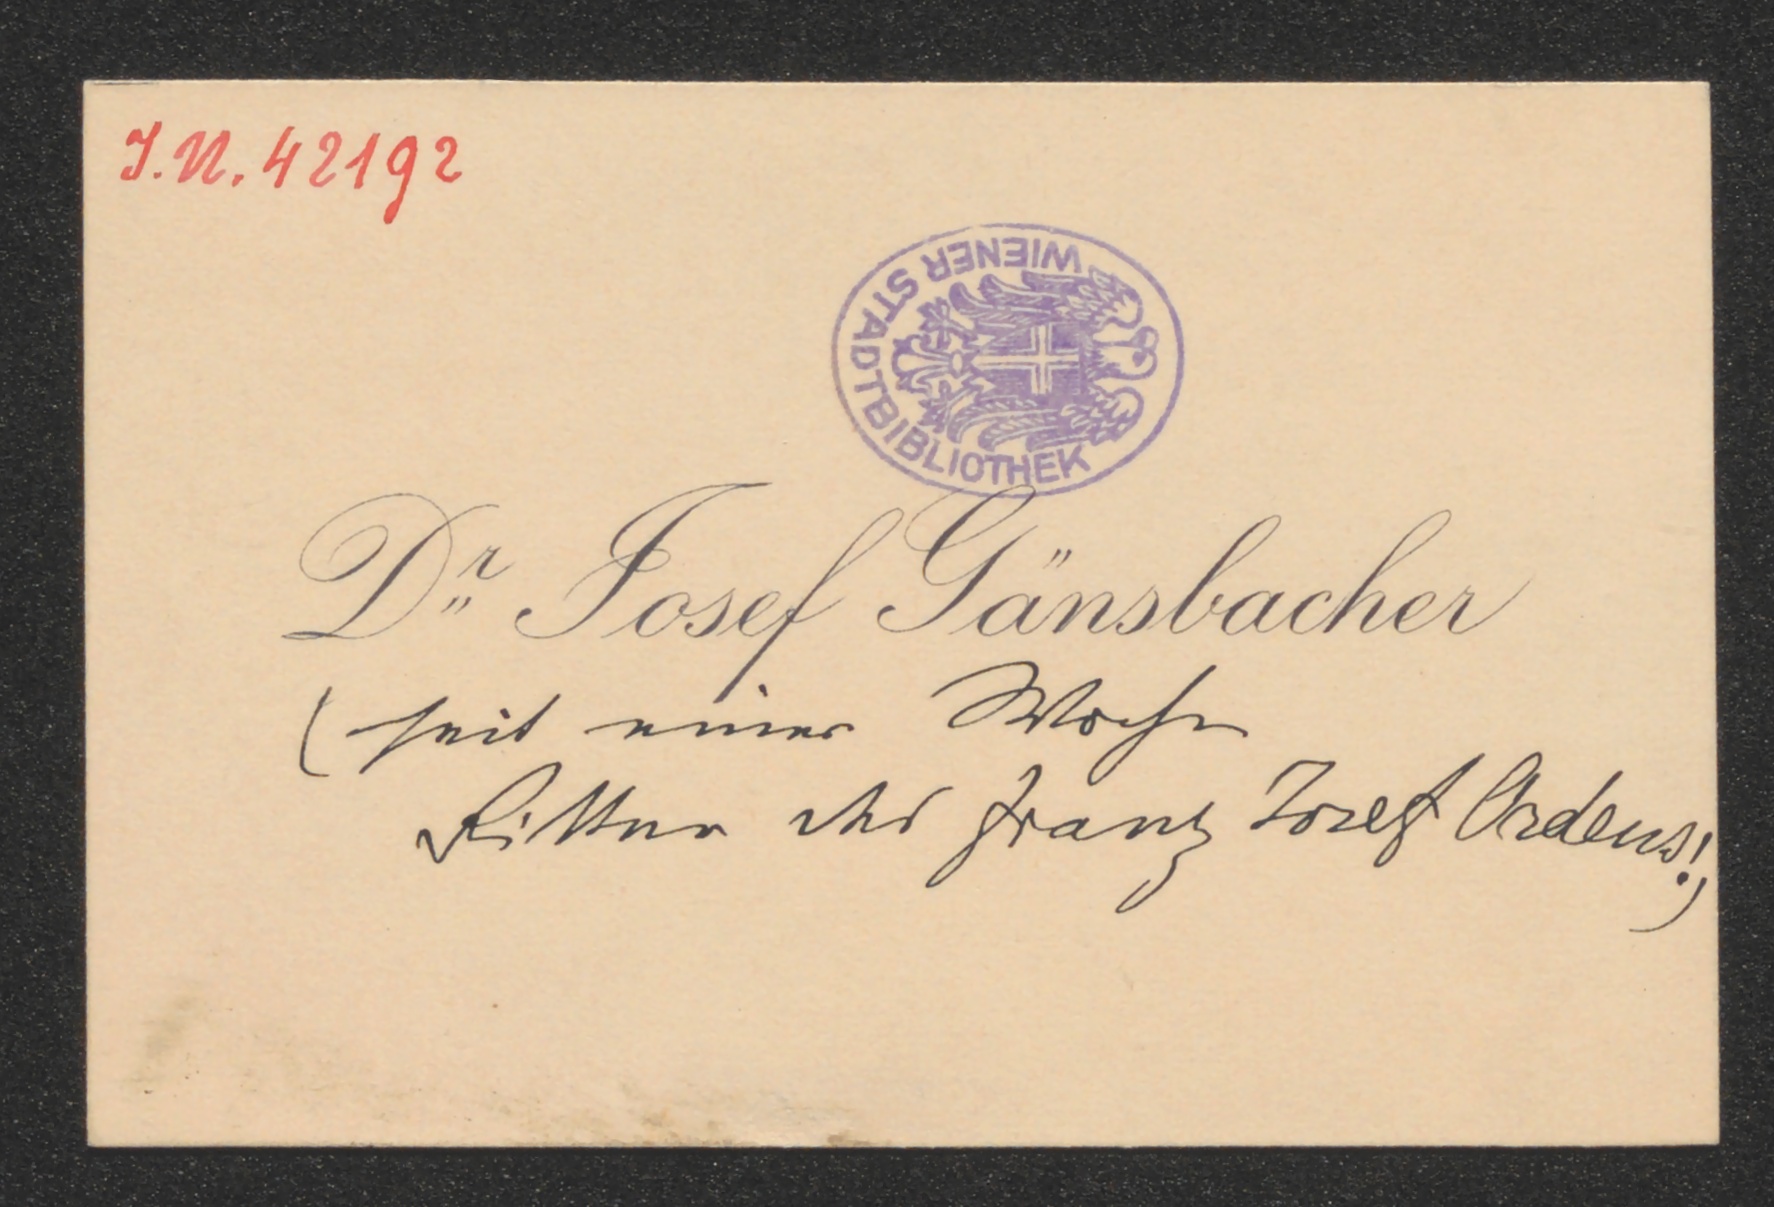 J.N. 42192
WIENER STADTBIBLIOTHEK
Dr. Josef Gänsbacher
(seit einer Woche
Ritter des Franz Josef Ordens!)